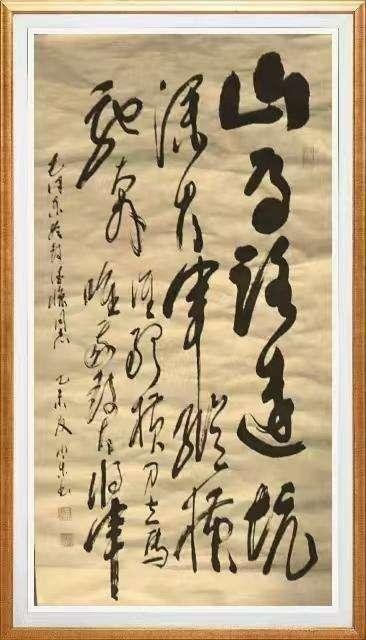 山高路遠坑
深大軍縱橫
馳奔誰敢橫刀立馬
唯我彭大將軍
毛澤東給彭德懷同志 乙未夏